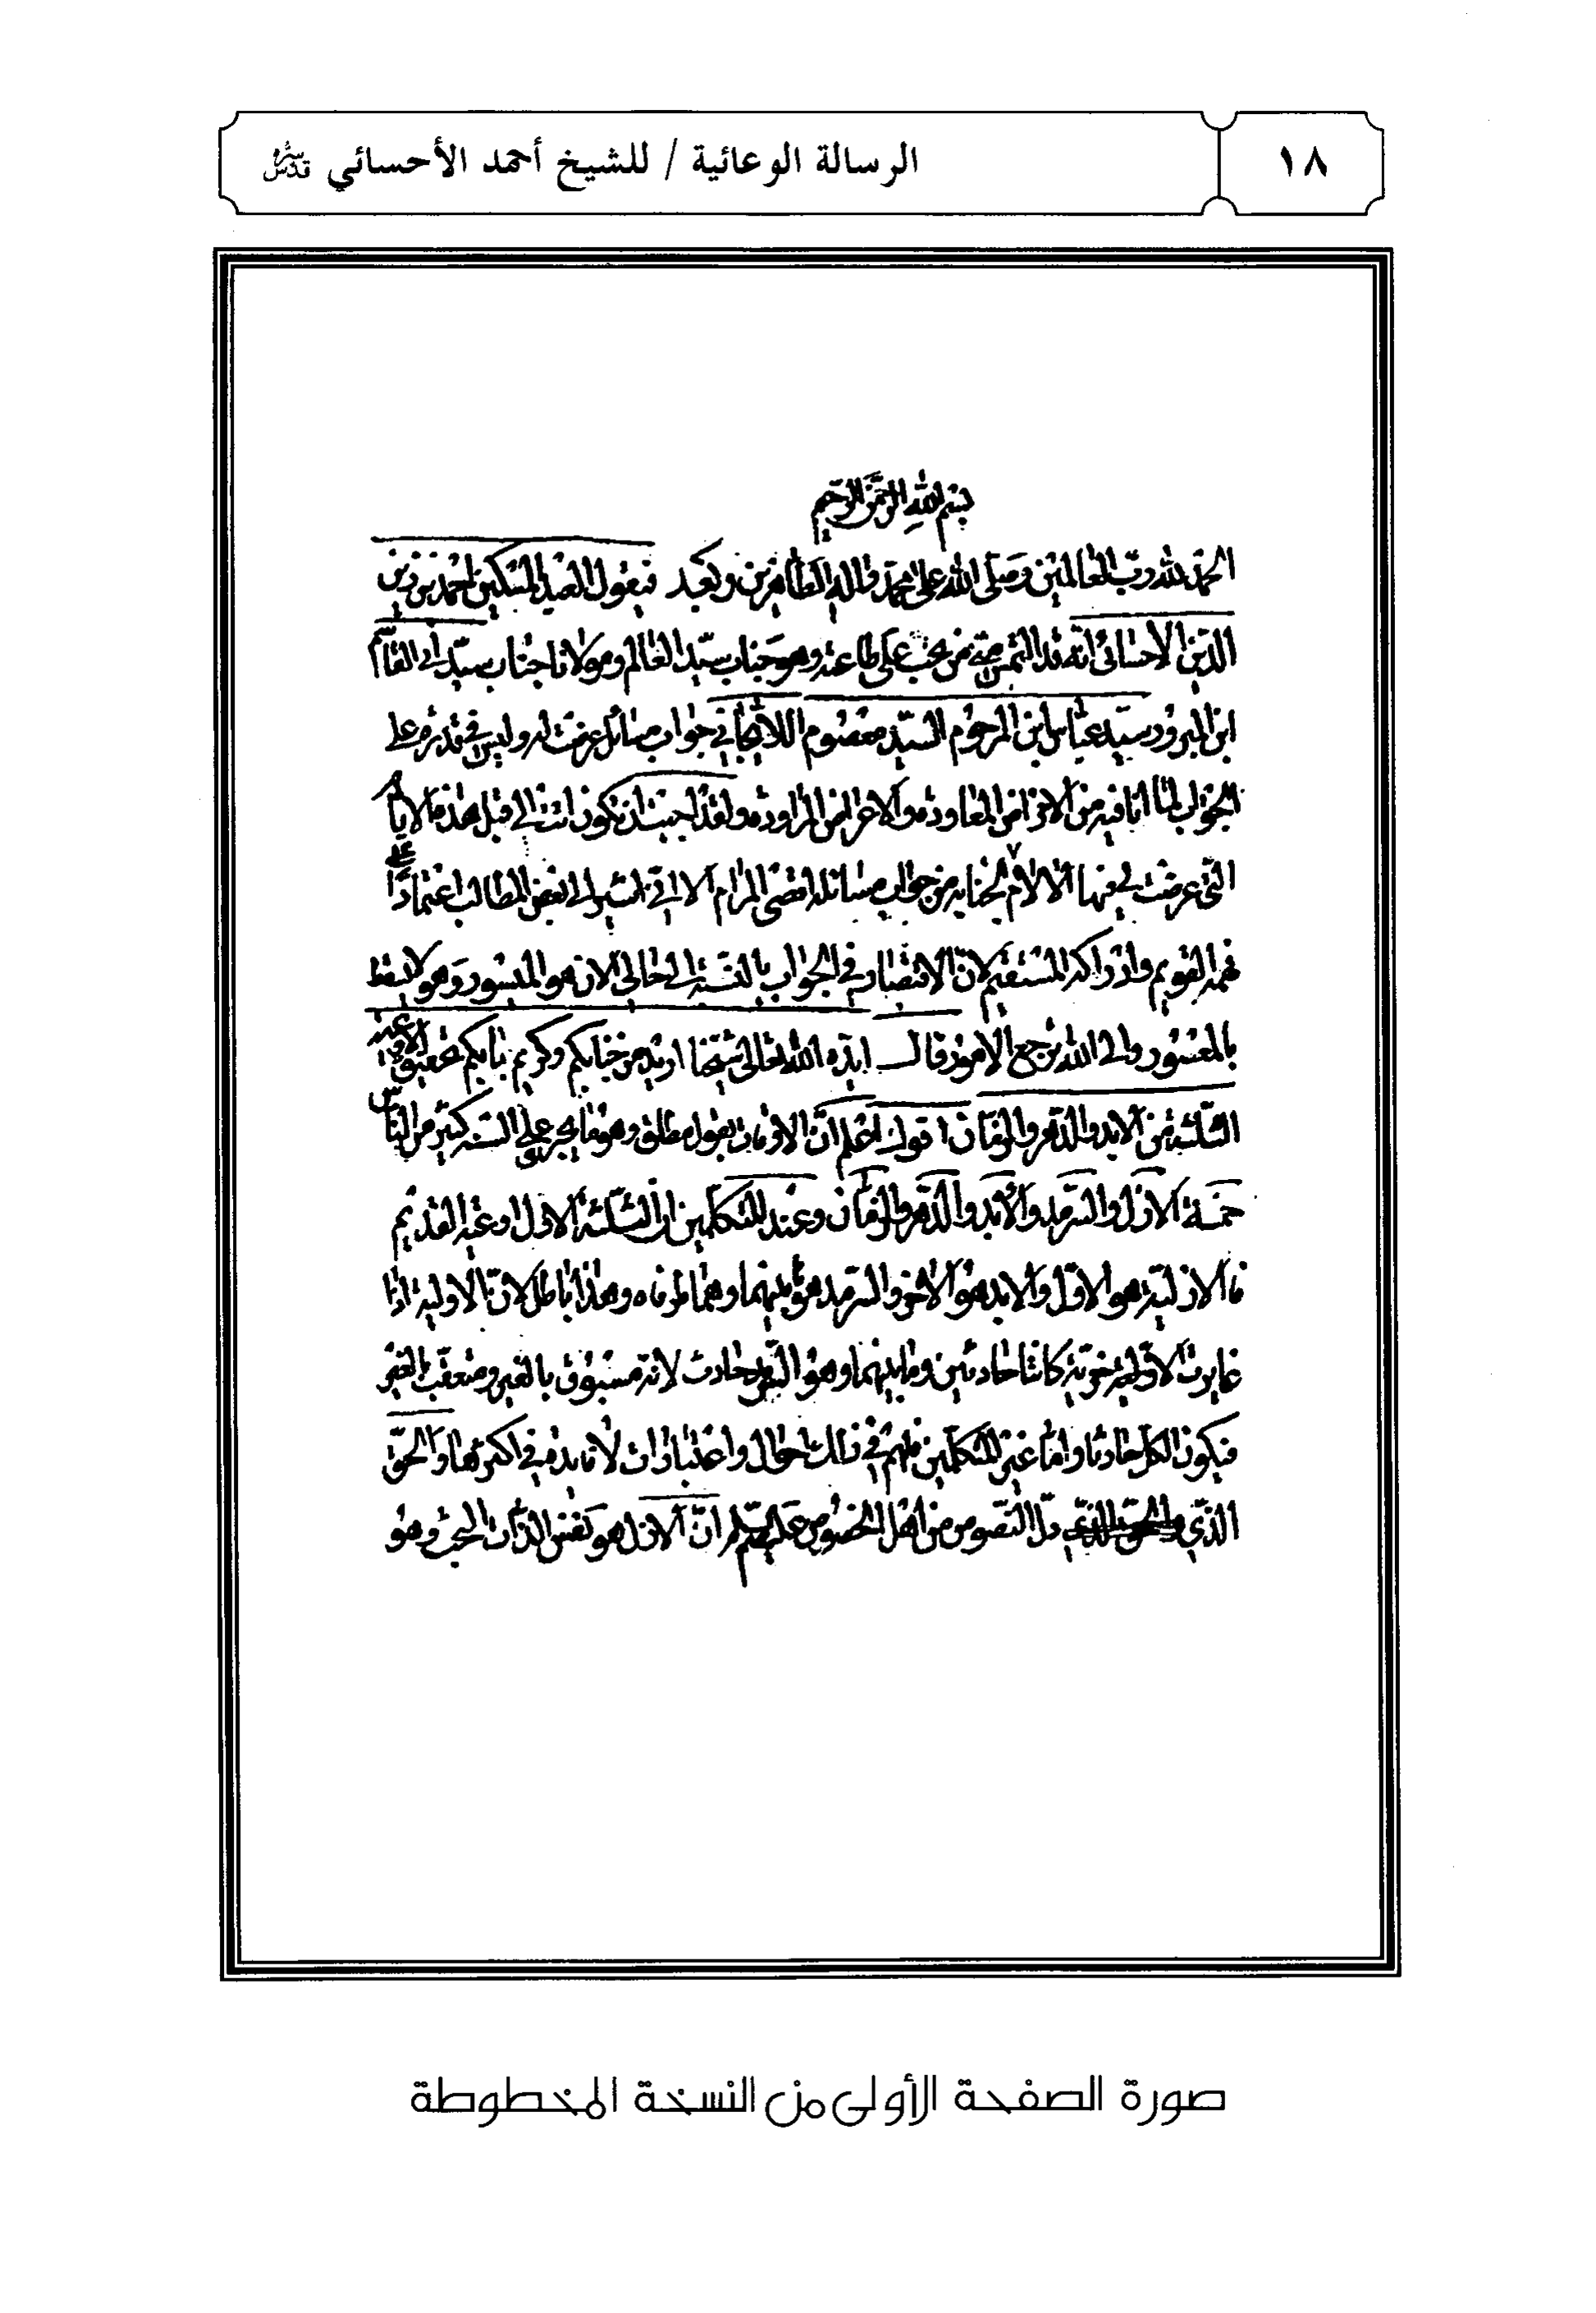 ١٨
الرسالة الوعائية / للشيخ أحمد الأحسائي قدس سره
بسم الله الرحمن الرحيم
الحمد لله رب العالمين وصلى الله على محمد واله الطاهرين وبعد فيقول العبد المسكين احمد بن زين
الدين الاحسائي انه قد التمس مني من تجب علي طاعته وهو جناب سيد العالم ومولانا جناب سيد ابي القاسم
ابن المبرور سيد عباس ابن المرحوم السيد معصوم اللاهيجاني في جواب مسائل عرضت له وليس في قدرته على
الجواب لما انا فيه من الامراض المعاودة والاعراض المراودة ولقد احببت ان تكون اتت الي قبل هذه الايام
التي عرضت لي فيها الالام لجنابه من جواب مسائله اقصى المرام الا اني اشير الى بعض المطالب اعتمادا على
فهمه القويم وادراكه المستقيم لان الاقتصار في الجواب بالنسبة الى حالي الان هو الميسور وهو لا يسقط
بالمعسور والى الله ترجع الامور قال ايده الله تعالى شيخنا اريد من جنابكم وكريم بابكم تحقيق الاوعية
الثلثة من الابد والدهر والزمان اقول اعلم ان الاوعية بقول مطلق وهو ما يجري على السنة كثير من الناس
خمسة الازل والسرمد والابد والدهر والزمان وعند المتكلمين ان الثلثة الاول اوعية القديم
فالازلية هو الاول والابد هو الاخر والسرمد هو بينهما وهما طرفاه وهذا باطل لان الاولية اذا
غايرت الاخرية كانتا حادثين وما بينهما وهو السرمد حادث لانه مسبوق بالغير ومتعقب بالغير
فيكون الكل حادثا واما غير المتكلمين فلهم في ذلك احوال واعتبارات لا فايدة في اكثرها والحق
الذي دل النصوص من اهل الخصوص عليهم السلام ان الازل هو نفس الذات البحت وهو
صورة الصفحة الأولى من النسخة المخطوطة